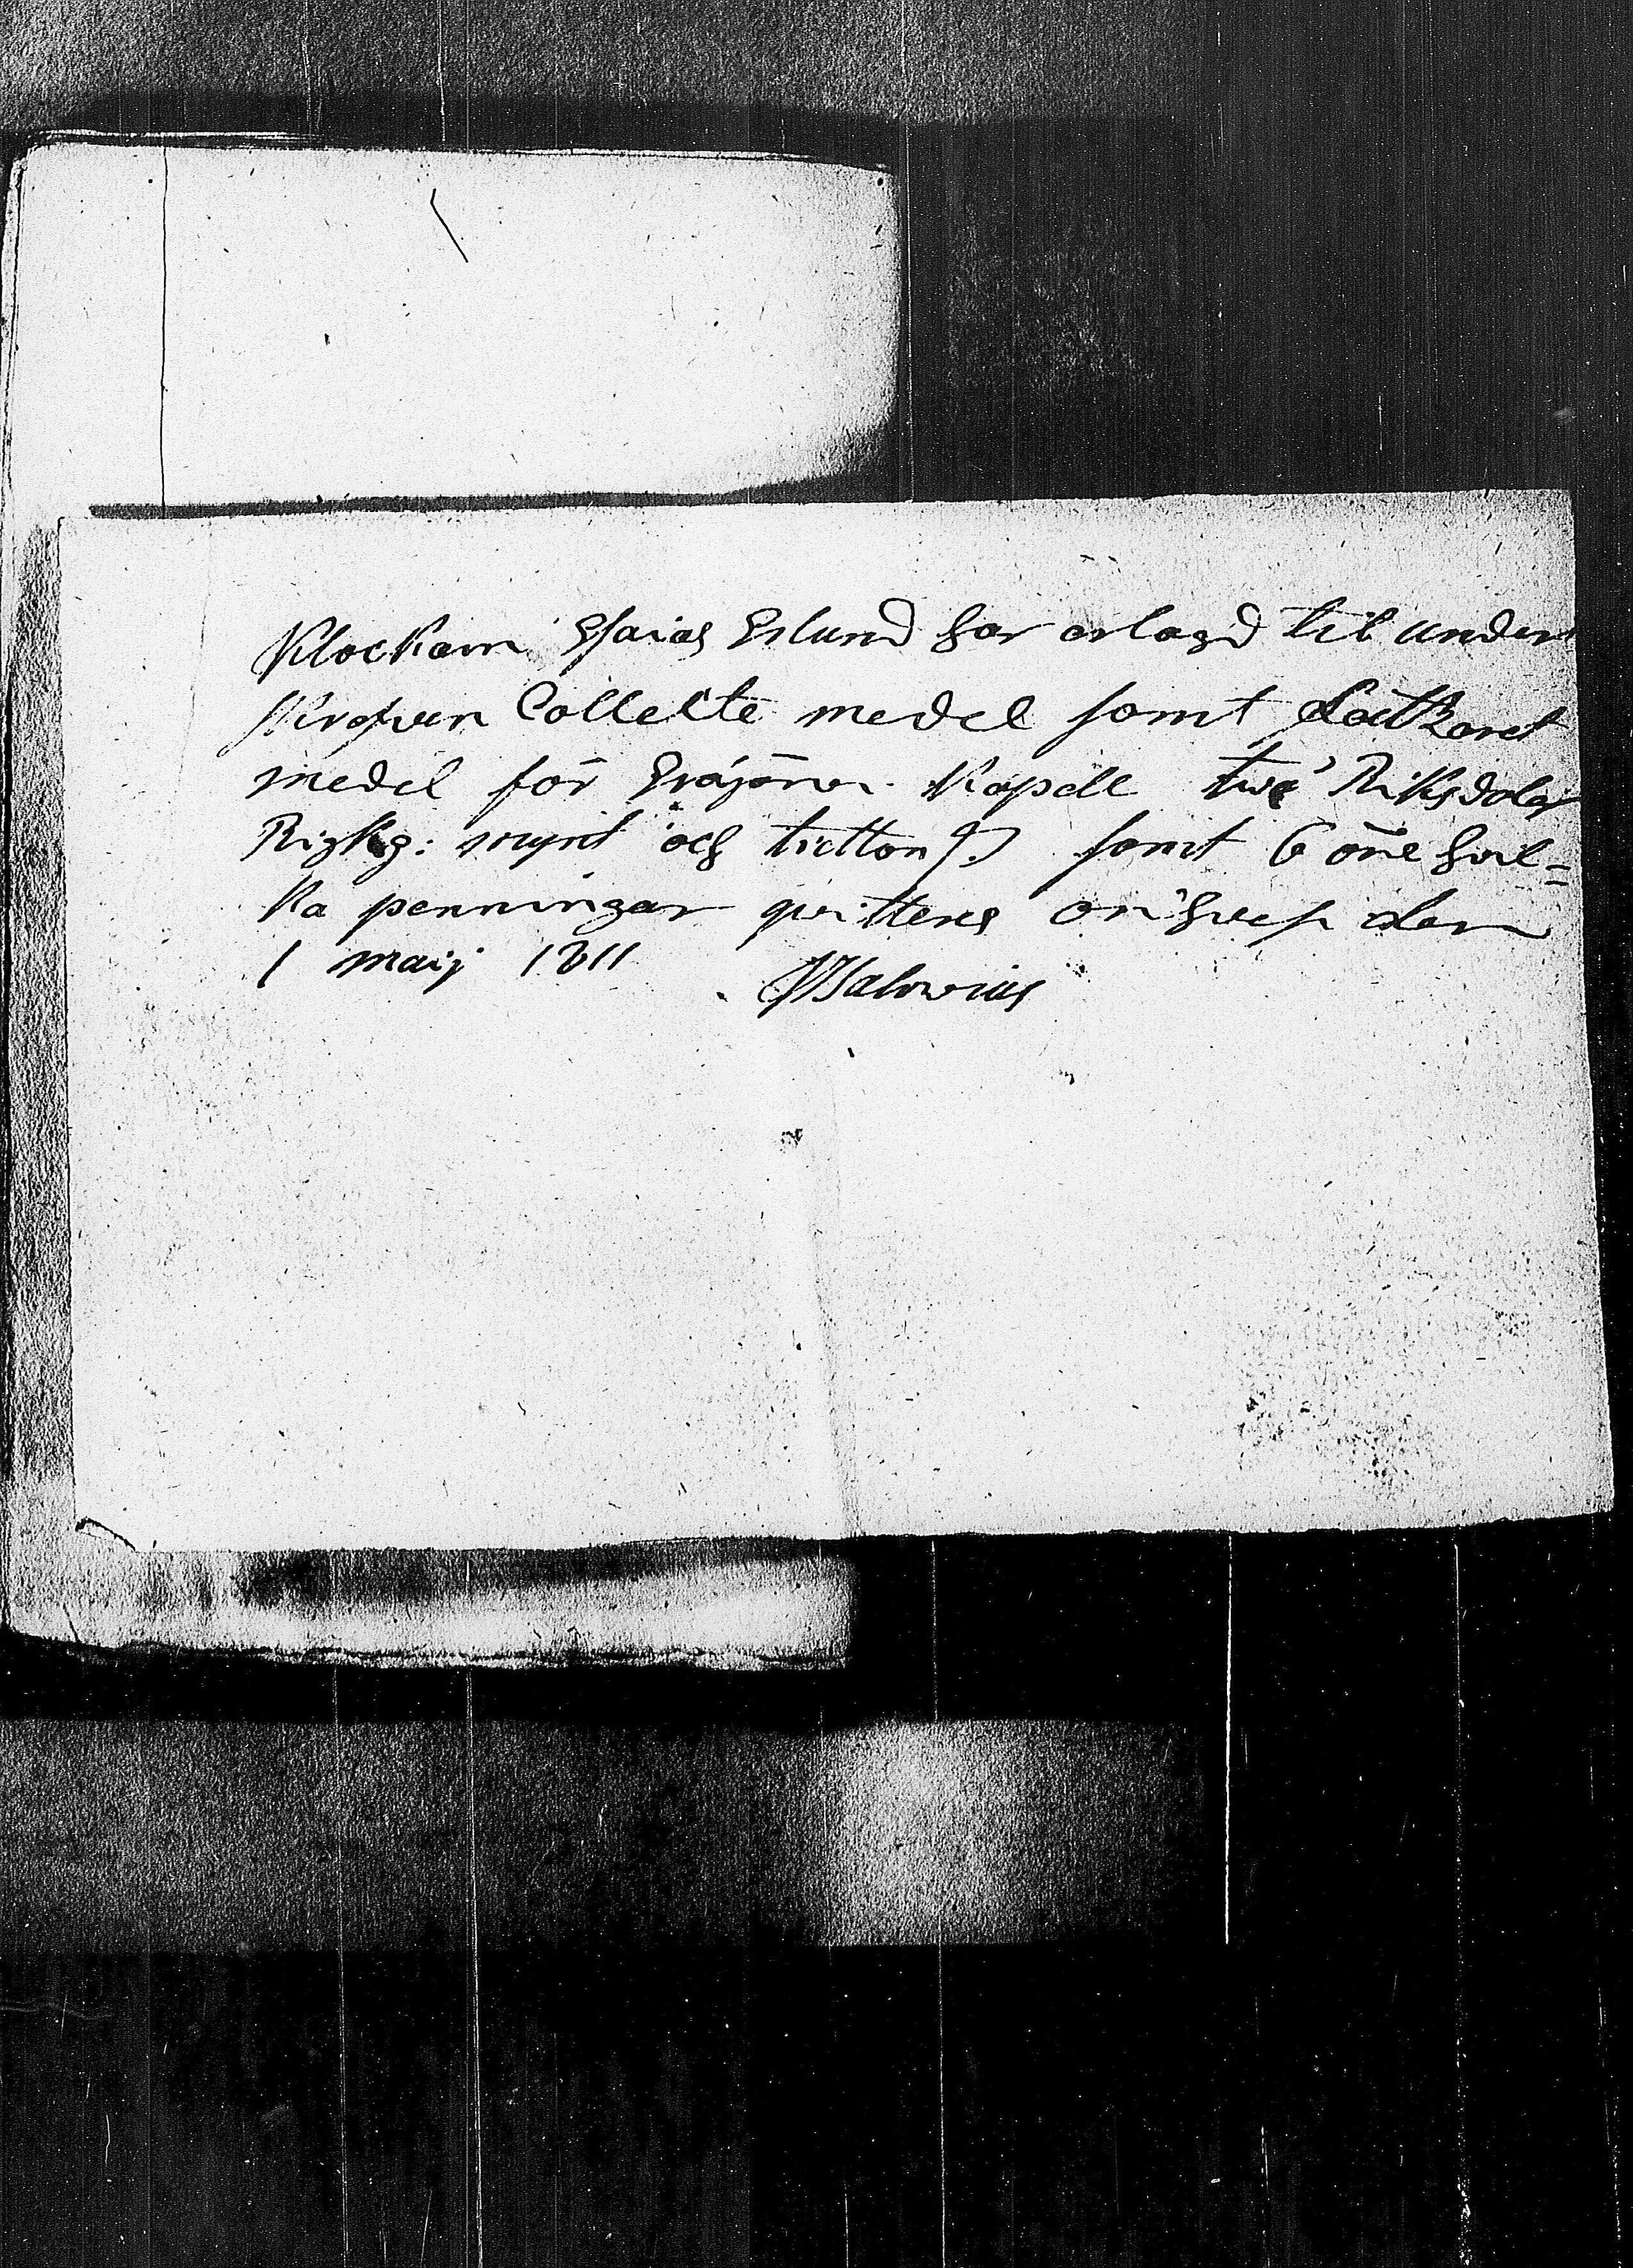 Klockarn Esaias Erlund har erlagd til under
skrefven Collecte medel samt
medel för Eräjärvi Kapell twå Riksdaler
Rigkg: mynt och tretton ß samt 6 öre hvil=
ka penningar qvitteras den
1 maij 1811
Salovius